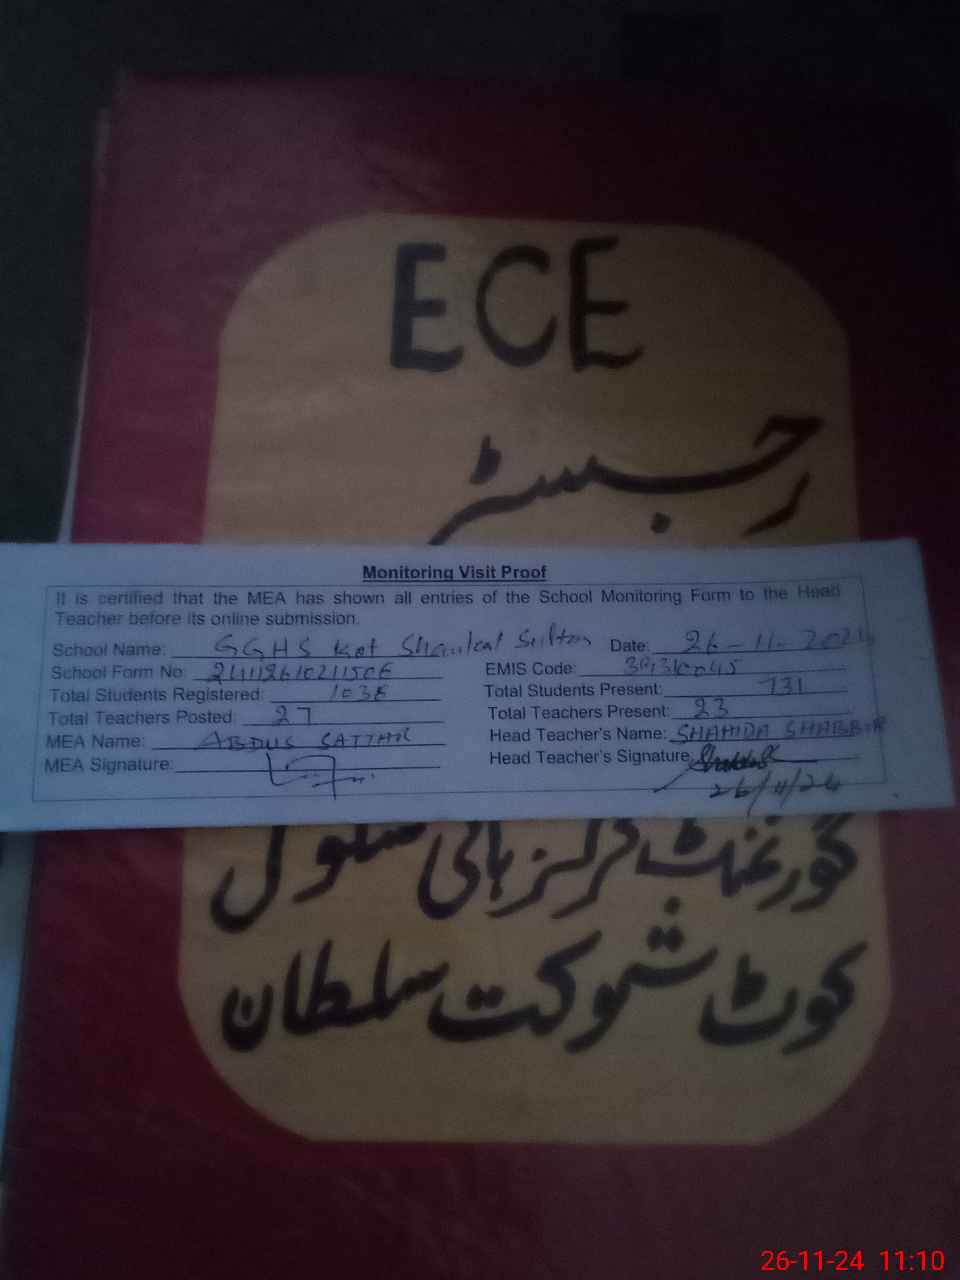 ECE
رجسٹر
Monitoring Visit Proof
It is certified that the MEA has shown all entries of the School Monitoring Form to the Head
Teacher before its online submission.
School Name: GGHS Kot Shaukat Sultan Date: 26-11-2024
School Form No: EMIS Code:
Total Students Registered: 1038 Total Students Present: 731
Total Teachers Posted: 27 Total Teachers Present: 23
MEA Name: ABDUS SATTAR Head Teacher's Name: SHAHIDA SHABBIR
MEA Signature: Head Teacher's Signature:
26/11/24
گورنمنٹ گرلز ہائی سکول
کوٹ شوکت سلطان
26-11-24 11:10